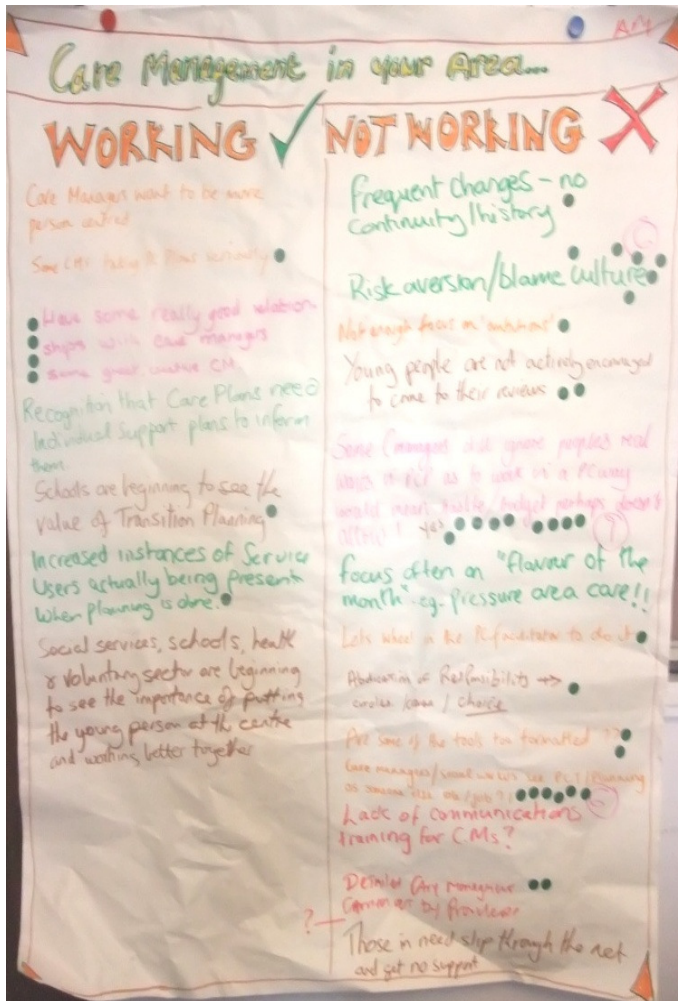 AM
Care Management in your Area...
WORKING
Care Managers want to be more
person centred
Some
Have some really good relation-
ships with care managers
some great creative CM.
Recognition that Care Plans need
Individual Support plans to inform
them.
Schools are beginning to see the
value of Transition Planning
Increased instances of Service
Users actually being present
When planning is done.
Social services, schools, health
& voluntary sector are beginning
to see the importance of putting
the young person at the centre
and working better together
NOT WORKING
Frequent changes - no
Continuity/history
Risk aversion/blame culture
Not enough focus on 'outcomes'
Young people are not actively encouraged
to come to their reviews
Some managers still ignore peoples real
as to work in a PC way
would mean budget perhaps doesn't
yes
focus often on "flavour of the
month" eg. pressure area care!!
Lets wheel in the PC facilitator to do it
Abdication of Responsibility
choice
Are some of the tools too formatted ??
Care managers/social workers see PCT/Planning
as someone else job?!
Lack of communications
training for C.Ms?
Care management
by Provider
?
Those in need slip through the net
and get no support